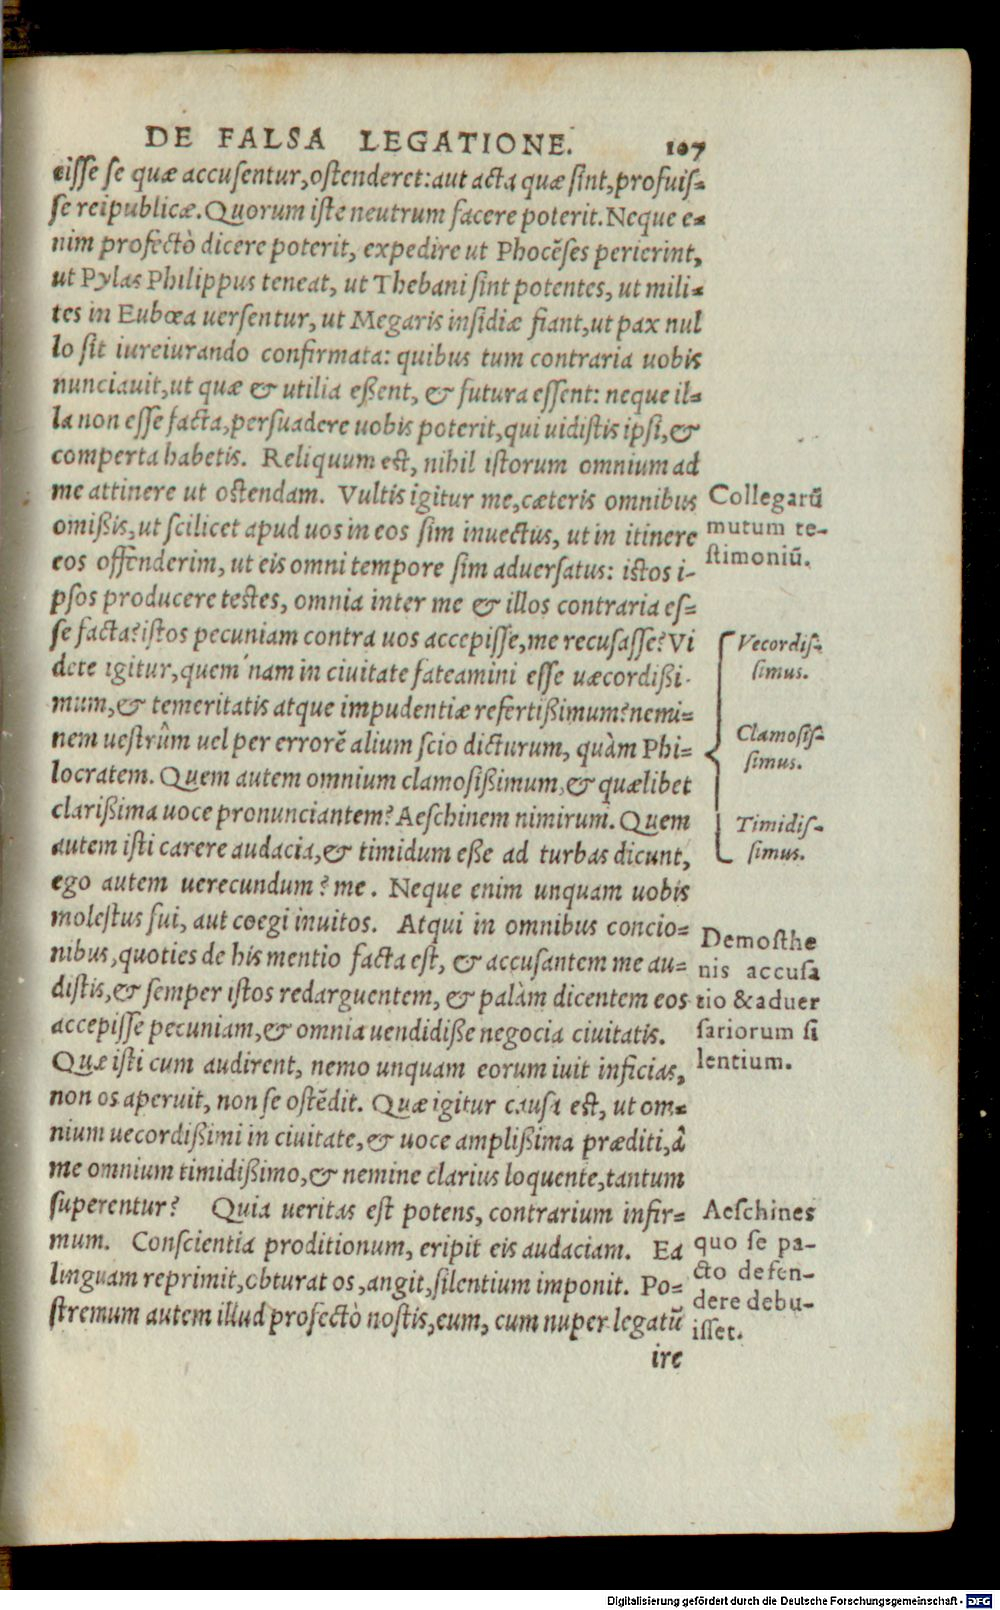 DE FALSA LEGATIONE. 107
cisse se quæ accusentur, ostenderet: aut acta quæ sint, profuis-
se reipublicæ. Quorum iste neutrum facere poterit. Neque e-
nim profectò dicere poterit, expedire ut Phocẽses perierint,
ut Pylas Philippus teneat, ut Thebani sint potentes, ut mili-
tes in Eubœa uersentur, ut Megaris insidiæ fiant, ut pax nul
lo sit iureiurando confirmata: quibus tum contraria uobis
nunciauit, ut quæ & utilia eßent, & futura essent: neque il-
la non esse facta, persuadere uobis poterit, qui uidistis ipsi, &
comperta habetis. Reliquum est, nihil istorum omnium ad
me attinere ut ostendam. Vultis igitur me, cæteris omnibus
omißis, ut scilicet apud uos in eos sim inuectus, ut in itinere
eos offenderim, ut eis omni tempore sim aduersatus: istos i-
psos producere testes, omnia inter me & illos contraria es-
se facta? istos pecuniam contra uos accepisse, me recusasse? Vi
dete igitur, quem nam in ciuitate fateamini esse uæcordißi-
mum, & temeritatis atque impudentiæ refertißimum? nemi-
nem uestrûm uel per errorẽ alium scio dicturum, quàm Phi-
locratem. Quem autem omnium clamosißimum, & quælibet
clarißima uoce pronunciantem? Aeschinem nimirum. Quem
autem isti carere audacia, & timidum eße ad turbas dicunt,
ego autem uerecundum? me. Neque enim unquam uobis
molestus fui, aut coegi inuitos. Atqui in omnibus concio-
nibus, quoties de his mentio facta est, & accusantem me au-
distis, & semper istos redarguentem, & palàm dicentem eos
accepisse pecuniam, & omnia uendidiße negocia ciuitatis.
Quæ isti cum audirent, nemo unquam eorum iuit inficias,
non os aperuit, non se ostẽdit. Quæ igitur causa est, ut om-
nium uecordißimi in ciuitate, & uoce amplißima præditi, à
me omnium timidißimo, & nemine clarius loquente, tantum
superentur? Quia ueritas est potens, contrarium infir-
mum. Conscientia proditionum, eripit eis audaciam. Ea
linguam reprimit, obturat os, angit, silentium imponit. Po-
stremum autem illud profectò nostis, eum, cum nuper legatũ
ire
Collegarũ
mutum te-
stimoniũ.
Vecordis-
simus.
Clamosis-
simus.
Timidis-
simus.
Demosthe
nis accusa
tio & aduer
sariorum si
lentium.
Aeschines
quo se pa-
cto defen-
dere debu-
isset.
Digitalisierung gefördert durch die Deutsche Forschungsgemeinschaft - DFG